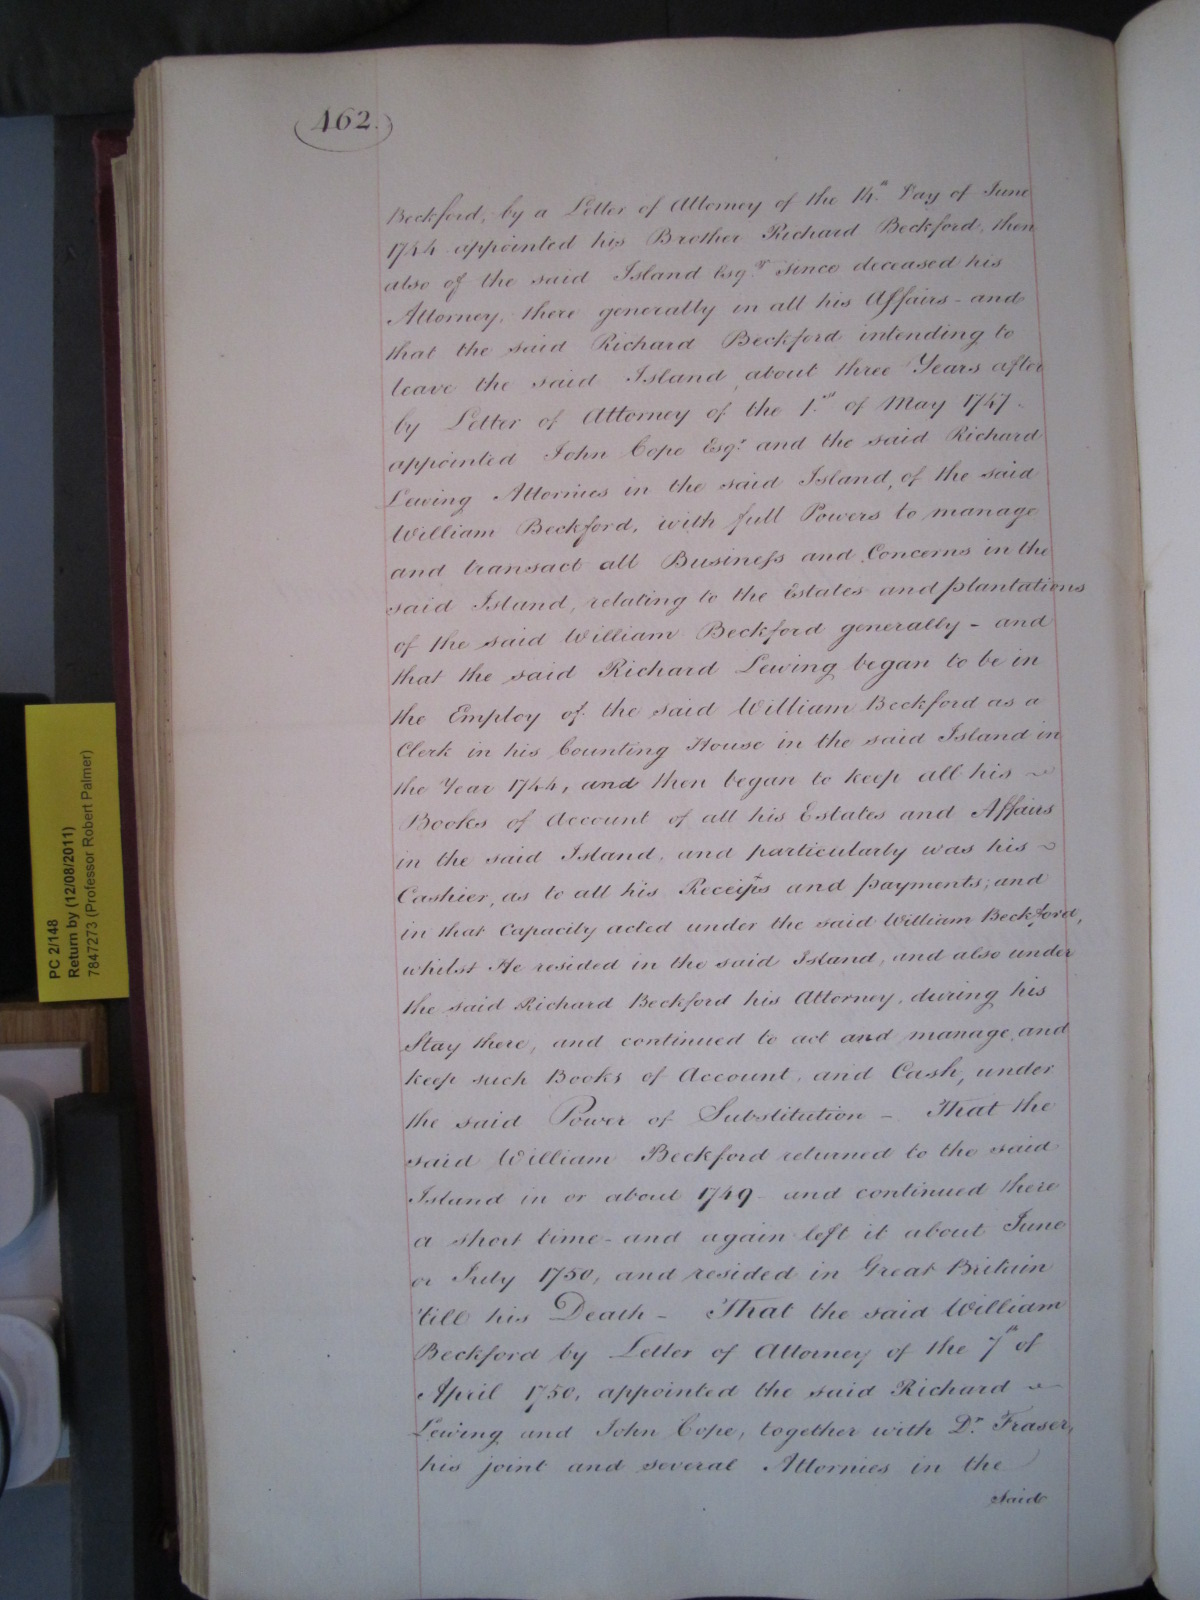 462.
Beckford, by a Letter of Attorney of the 14.th Day of June
1744 appointed his Brother Richard Beckford, then
also of the said Island Esq.r since deceased his
Attorney, there generally in all his Affairs - and
that the said Richard Beckford intending to
leave the said Island about three Years after
by Letter of Attorney of the 1.st of May 1747 -
appointed John Cope Esq.r and the said Richard
Lewing Attornies in the said Island, of the said
William Beckford, with full Powers to manage
and transact all Business and Concerns in the
said Island, relating to the Estates and plantations
of the said William Beckford generally - and
that the said Richard Lewing began to be in
the Employ of the said William Beckford as a
Clerk in his Counting House in the said Island in
the Year 1744, and then began to keep all his ~
Books of Account of all his Estates and Affairs
in the said Island, and particularly was his ~
Cashier, as to all his Receipts and payments; and
in that Capacity acted under the said William Beckford,
whilst He resided in the said Island, and also under
the said Richard Beckford his Attorney, during his
Stay there, and continued to act and manage, and
keep such Books of Account, and Cash, under
the said Power of Substitution - That the
said William Beckford returned to the said
Island in or about 1749 - and continued there
a short time - and again left it about June
or July 1750, and resided in Great Britain
'till his Death - That the said William
Beckford by Letter of Attorney of the 7th of
April 1750, appointed the said Richard ~
Lewing and John Cope, together with D.r Fraser,
his joint and several Attornies in the
said
PC 2/148
Return by (12/08/2011)
7847273 (Professor Robert Palmer)